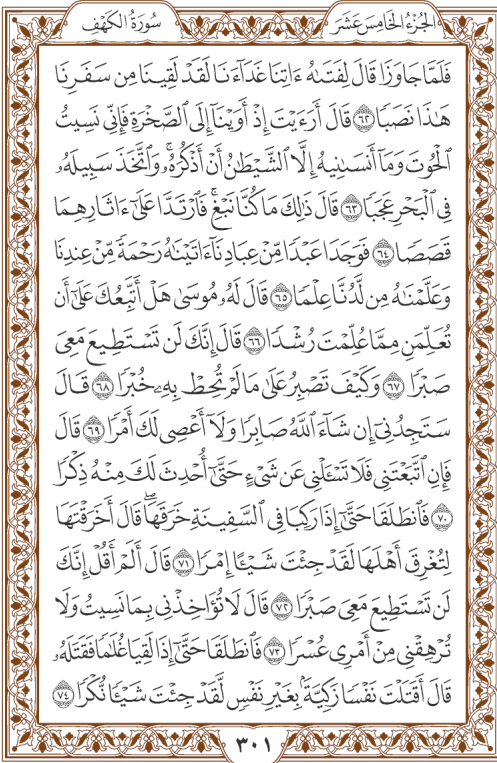 الجُزْءُ الخَامِسَ عَشَرَ سُورَةُ الكَهْفِ
فَلَمَّا جَاوَزَا قَالَ لِفَتَىٰهُ ءَاتِنَا غَدَآءَنَا لَقَدْ لَقِينَا مِن سَفَرِنَا
هَٰذَا نَصَبًا ٦٢ قَالَ أَرَءَيْتَ إِذْ أَوَيْنَآ إِلَى ٱلصَّخْرَةِ فَإِنِّي نَسِيتُ
ٱلْحُوتَ وَمَآ أَنسَىٰنِيهُ إِلَّا ٱلشَّيْطَٰنُ أَنْ أَذْكُرَهُۥۚ وَٱتَّخَذَ سَبِيلَهُۥ
فِي ٱلْبَحْرِ عَجَبًا ٦٣ قَالَ ذَٰلِكَ مَا كُنَّا نَبْغِۚ فَٱرْتَدَّا عَلَىٰٓ ءَاثَارِهِمَا
قَصَصًا ٦٤ فَوَجَدَا عَبْدًا مِّنْ عِبَادِنَآ ءَاتَيْنَٰهُ رَحْمَةً مِّنْ عِندِنَا
وَعَلَّمْنَٰهُ مِن لَّدُنَّا عِلْمًا ٦٥ قَالَ لَهُۥ مُوسَىٰ هَلْ أَتَّبِعُكَ عَلَىٰٓ أَن
تُعَلِّمَنِ مِمَّا عُلِّمْتَ رُشْدًا ٦٦ قَالَ إِنَّكَ لَن تَسْتَطِيعَ مَعِيَ
صَبْرًا ٦٧ وَكَيْفَ تَصْبِرُ عَلَىٰ مَا لَمْ تُحِطْ بِهِۦ خُبْرًا ٦٨ قَالَ
سَتَجِدُنِيٓ إِن شَآءَ ٱللَّهُ صَابِرًا وَلَآ أَعْصِي لَكَ أَمْرًا ٦٩ قَالَ
فَإِنِ ٱتَّبَعْتَنِي فَلَا تَسْـَٔلْنِي عَن شَيْءٍ حَتَّىٰٓ أُحْدِثَ لَكَ مِنْهُ ذِكْرًا
٧٠ فَٱنطَلَقَا حَتَّىٰٓ إِذَا رَكِبَا فِي ٱلسَّفِينَةِ خَرَقَهَاۖ قَالَ أَخَرَقْتَهَا
لِتُغْرِقَ أَهْلَهَا لَقَدْ جِئْتَ شَيْـًٔا إِمْرًا ٧١ قَالَ أَلَمْ أَقُلْ إِنَّكَ
لَن تَسْتَطِيعَ مَعِيَ صَبْرًا ٧٢ قَالَ لَا تُؤَاخِذْنِي بِمَا نَسِيتُ وَلَا
تُرْهِقْنِي مِنْ أَمْرِي عُسْرًا ٧٣ فَٱنطَلَقَا حَتَّىٰٓ إِذَا لَقِيَا غُلَٰمًا فَقَتَلَهُۥ
قَالَ أَقَتَلْتَ نَفْسًا زَكِيَّةًۢ بِغَيْرِ نَفْسٍ لَّقَدْ جِئْتَ شَيْـًٔا نُّكْرًا ٧٤
٣٠١